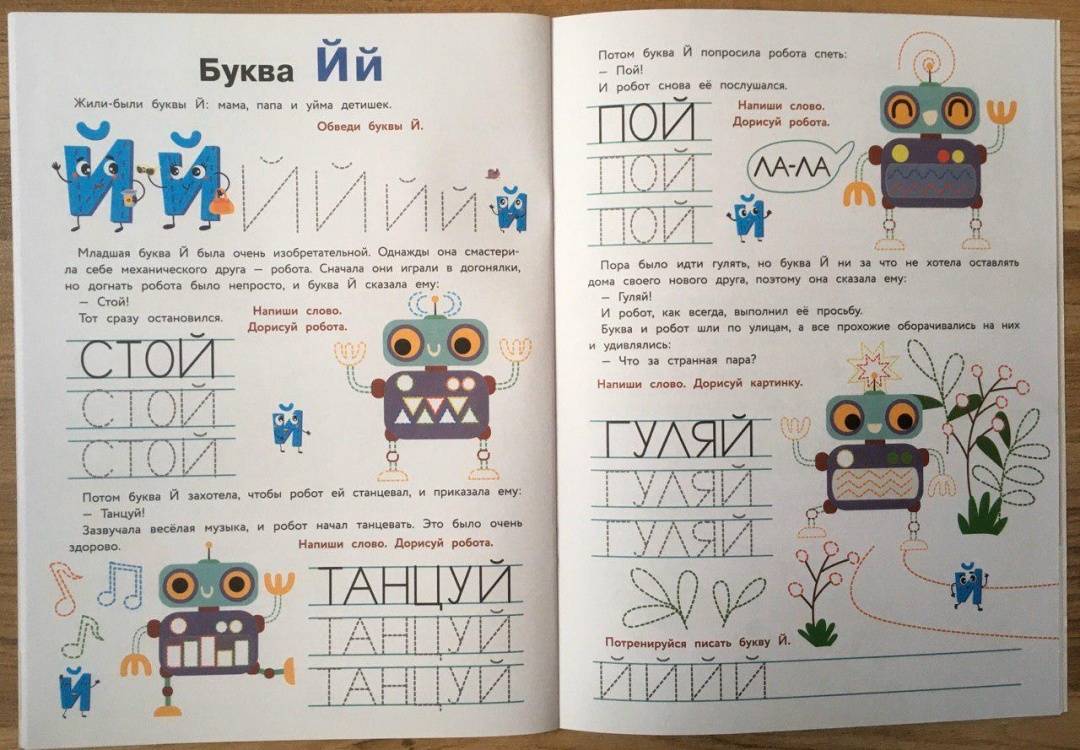 Буква Йй
Жили-были буквы Й: мама, папа и уйма детишек.
Обведи буквы Й.
Й Й Й Й Й Й Й
Младшая буква Й была очень изобретательной. Однажды она смастери-
ла себе механического друга – робота. Сначала они играли в догонялки,
но догнать робота было непросто, и буква Й сказала ему:
– Стой!
Тот сразу остановился.
Напиши слово.
Дорисуй робота.
СТОЙ
СТОЙ
СТОЙ
Й
Потом буква Й захотела, чтобы робот ей станцевал, и приказала ему:
– Танцуй!
Зазвучала весёлая музыка, и робот начал танцевать. Это было очень
здорово.
Напиши слово. Дорисуй робота.
ТАНЦУЙ
ТАНЦУЙ
ТАНЦУЙ
Й
Потом буква Й попросила робота спеть:
– Пой!
И робот снова её послушался.
Напиши слово.
Дорисуй робота.
ПОЙ
ПОЙ
ПОЙ
ЛА-ЛА
Й
Пора было идти гулять, но буква Й ни за что не хотела оставлять
дома своего нового друга, поэтому она сказала ему:
– Гуляй!
И робот, как всегда, выполнил её просьбу.
Буква и робот шли по улицам, а все прохожие оборачивались на них
и удивлялись:
– Что за странная пара?
Напиши слово. Дорисуй картинку.
ГУЛЯЙ
ГУЛЯЙ
ГУЛЯЙ
Й
Потренируйся писать букву Й.
Й Й Й Й Й